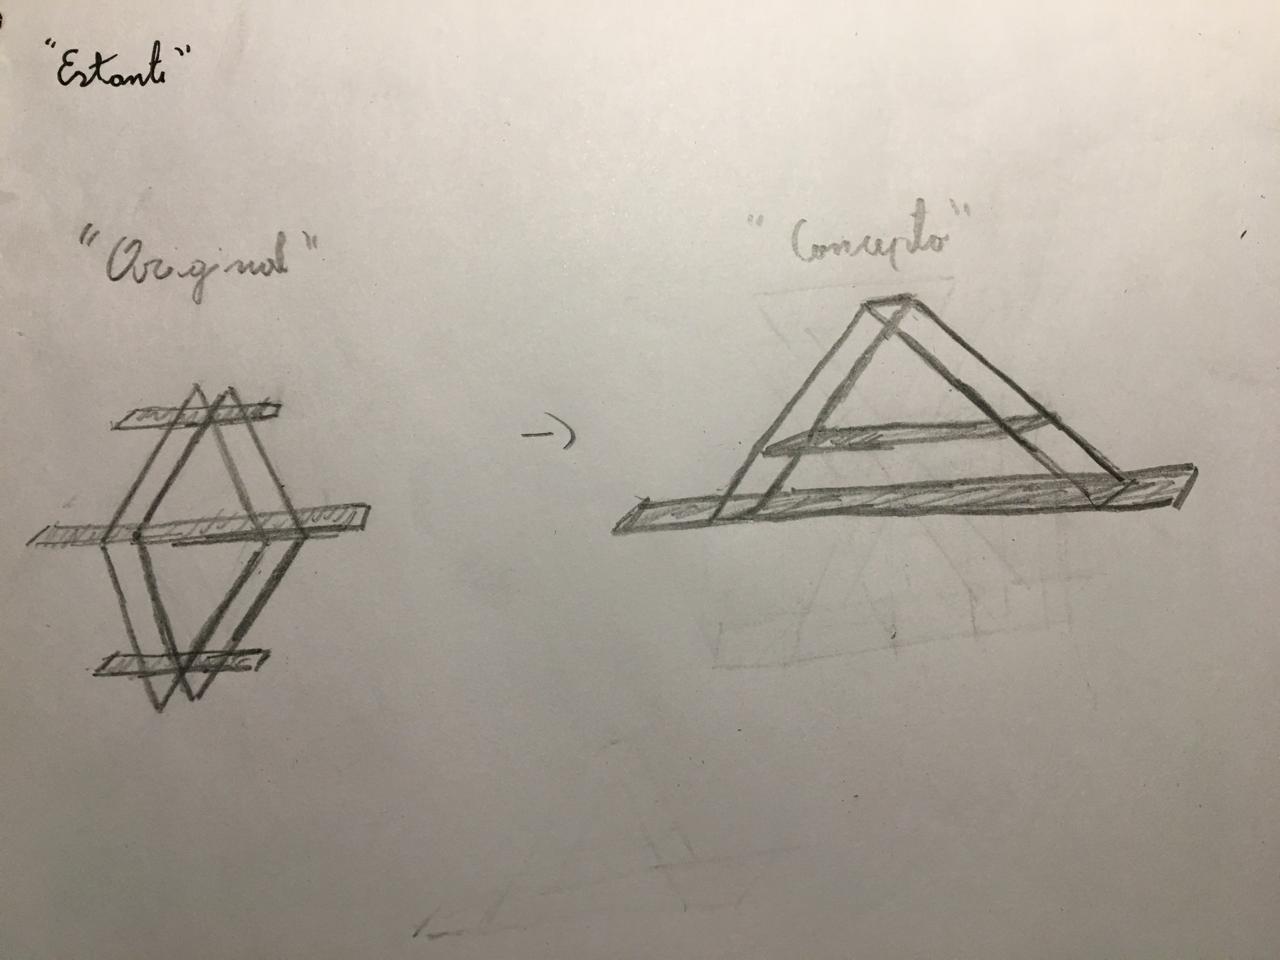 "Estante"
"Original"
"Concepto"